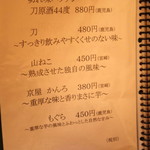 刀原酒44度 880円(鹿児島)
刀 480円(鹿児島)
～すっきり飲みやすくくせのない味～
山ねこ 450円(宮崎)
～熟成させた独自の風味～
京屋 かんろ 380円(宮崎)
～重厚な味と香りまさに芋～
もぐら 450円(鹿児島)